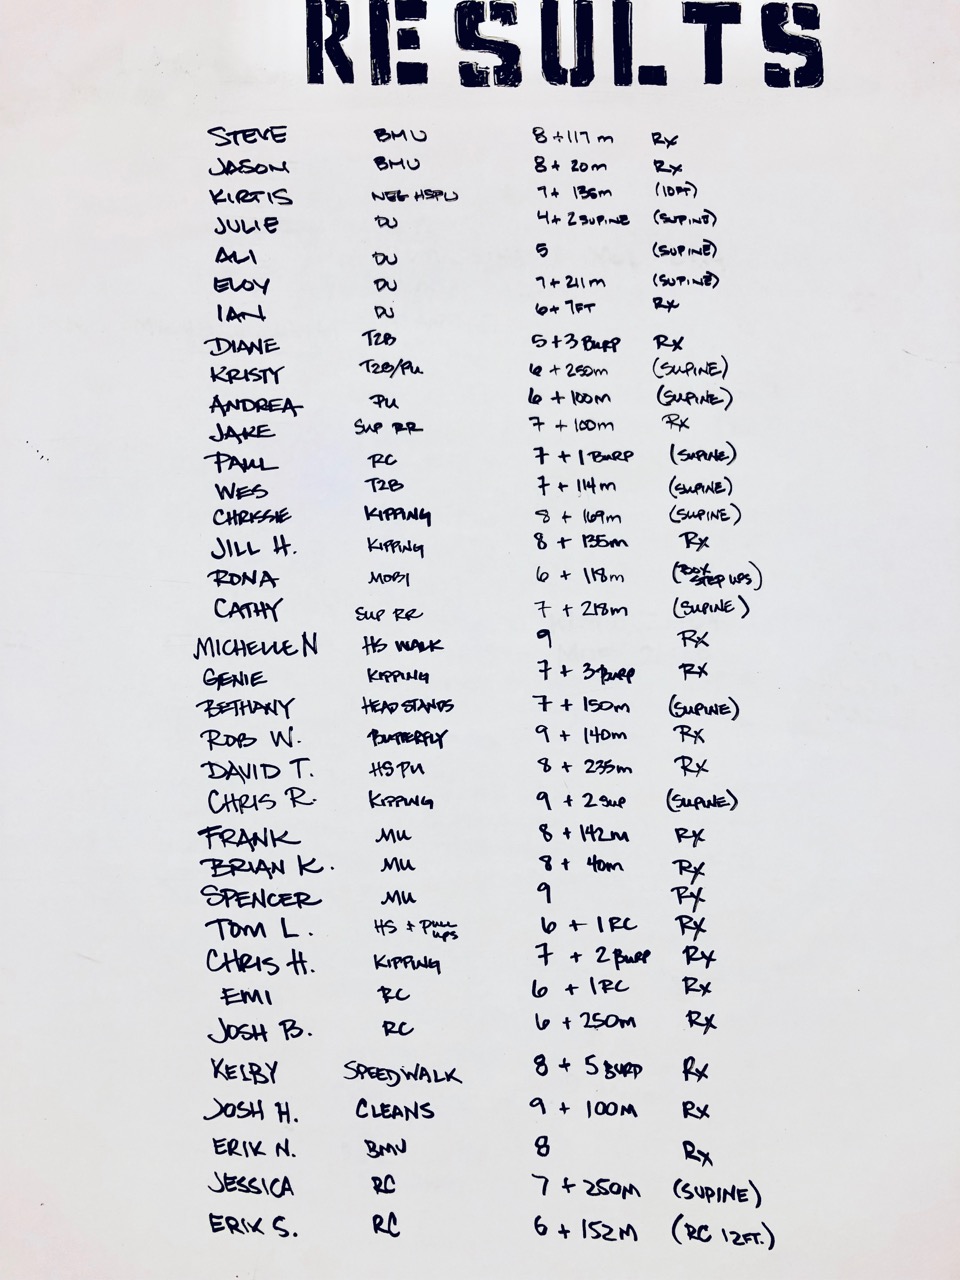 RESULTS
STEVE BMU 8+117m Rx
JASON BMU 8+20m Rx
KIRTIS NEG HSPU 7+135m (10FT)
JULIE DU 4+2 SUPINE (SUPINE)
ALI DU 5 (SUPINE)
ELOY DU 7+211m (SUPINE)
IAN DU 6+7FT Rx
DIANE T2B 5+3 BURP Rx
KRISTY T2B/PU 6+250m (SUPINE)
ANDREA PU 6+100m (SUPINE)
JAKE SUP RR 7+100m Rx
PAUL RC 7+1 BURP (SUPINE)
WES T2B 7+114m (SUPINE)
CHRISSIE KIPPING 8+169m (SUPINE)
JILL H. KIPPING 8+135m Rx
RONA MOBI 6+118m (BOX STEP UPS)
CATHY SUP RR 7+218m (SUPINE)
MICHELLE N HS WALK 9 Rx
GENIE KIPPING 7+3 BURP Rx
BETHANY HEADSTANDS 7+150m (SUPINE)
ROB W. BUTTERFLY 9+140m Rx
DAVID T. HSPU 8+235m Rx
CHRIS R. KIPPING 9+2 SUP (SUPINE)
FRANK MU 8+142m Rx
BRIAN K. MU 8+40m Rx
SPENCER MU 9 Rx
TOM L. HS + PULL UPS 6+1RC Rx
CHRIS H. KIPPING 7+2 BURP Rx
EMI RC 6+1RC Rx
JOSH B. RC 6+250m Rx
KELBY SPEEDWALK 8+5 BURP Rx
JOSH H. CLEANS 9+100M Rx
ERIK N. BMU 8 Rx
JESSICA RC 7+250M (SUPINE)
ERIK S. RC 6+152M (RC 12FT.)